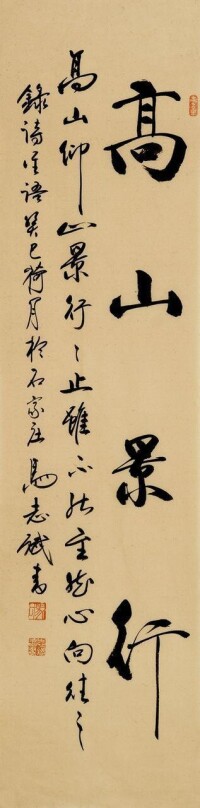 高山景行
高山仰止景行々止雖不能至然心向往之
錄詩佳語癸巳荷月於石家庄馬志斌書